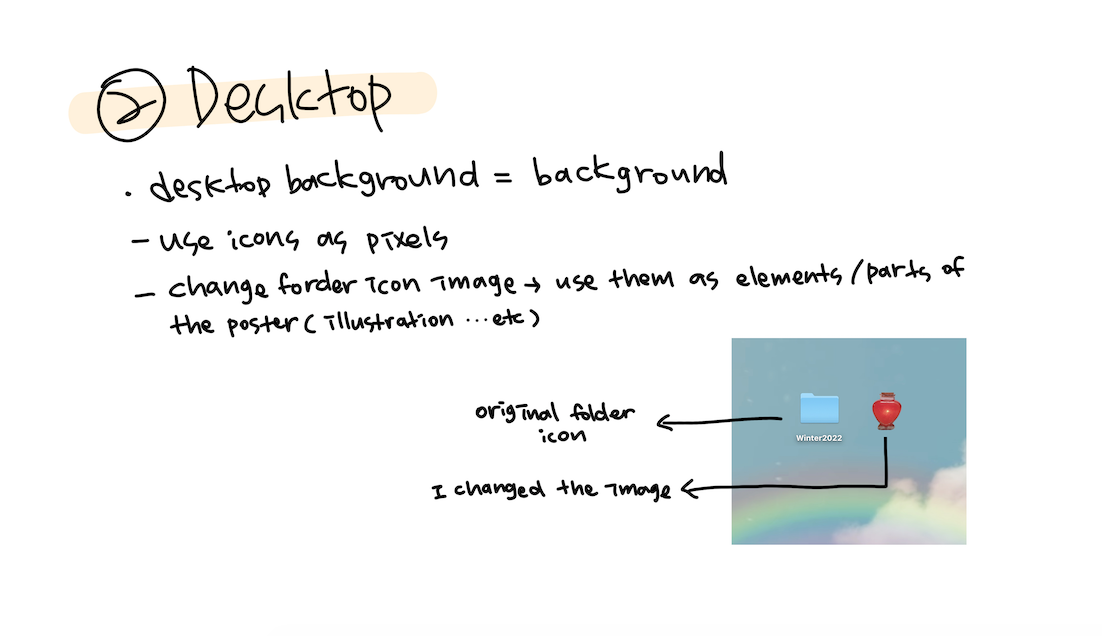 ② Desktop
· desktop background = background
- use icons as pixels
- change forder icon image → use them as elements/parts of
the poster ( illustration ...etc )
original folder
icon
Winter2022
I changed the image